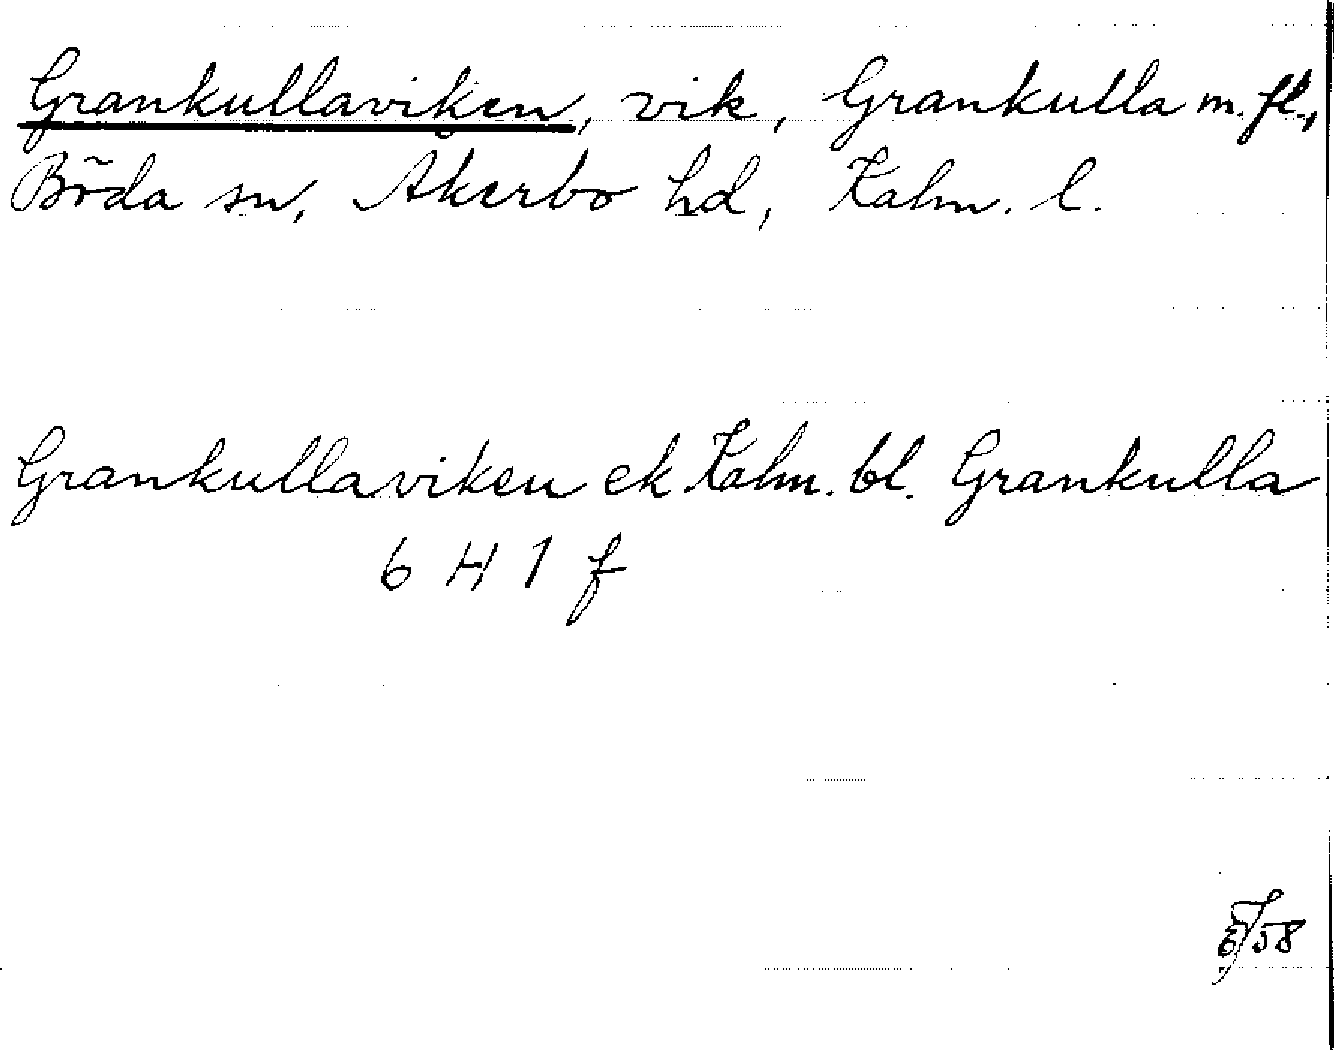 Grankullaviken, vik, Grankulla m. fl.,
Böda sn, Åkerbo hd, Kalm. l.
Grankullaviken ek Kalm. bl. Grankulla
6 H 1 f
58